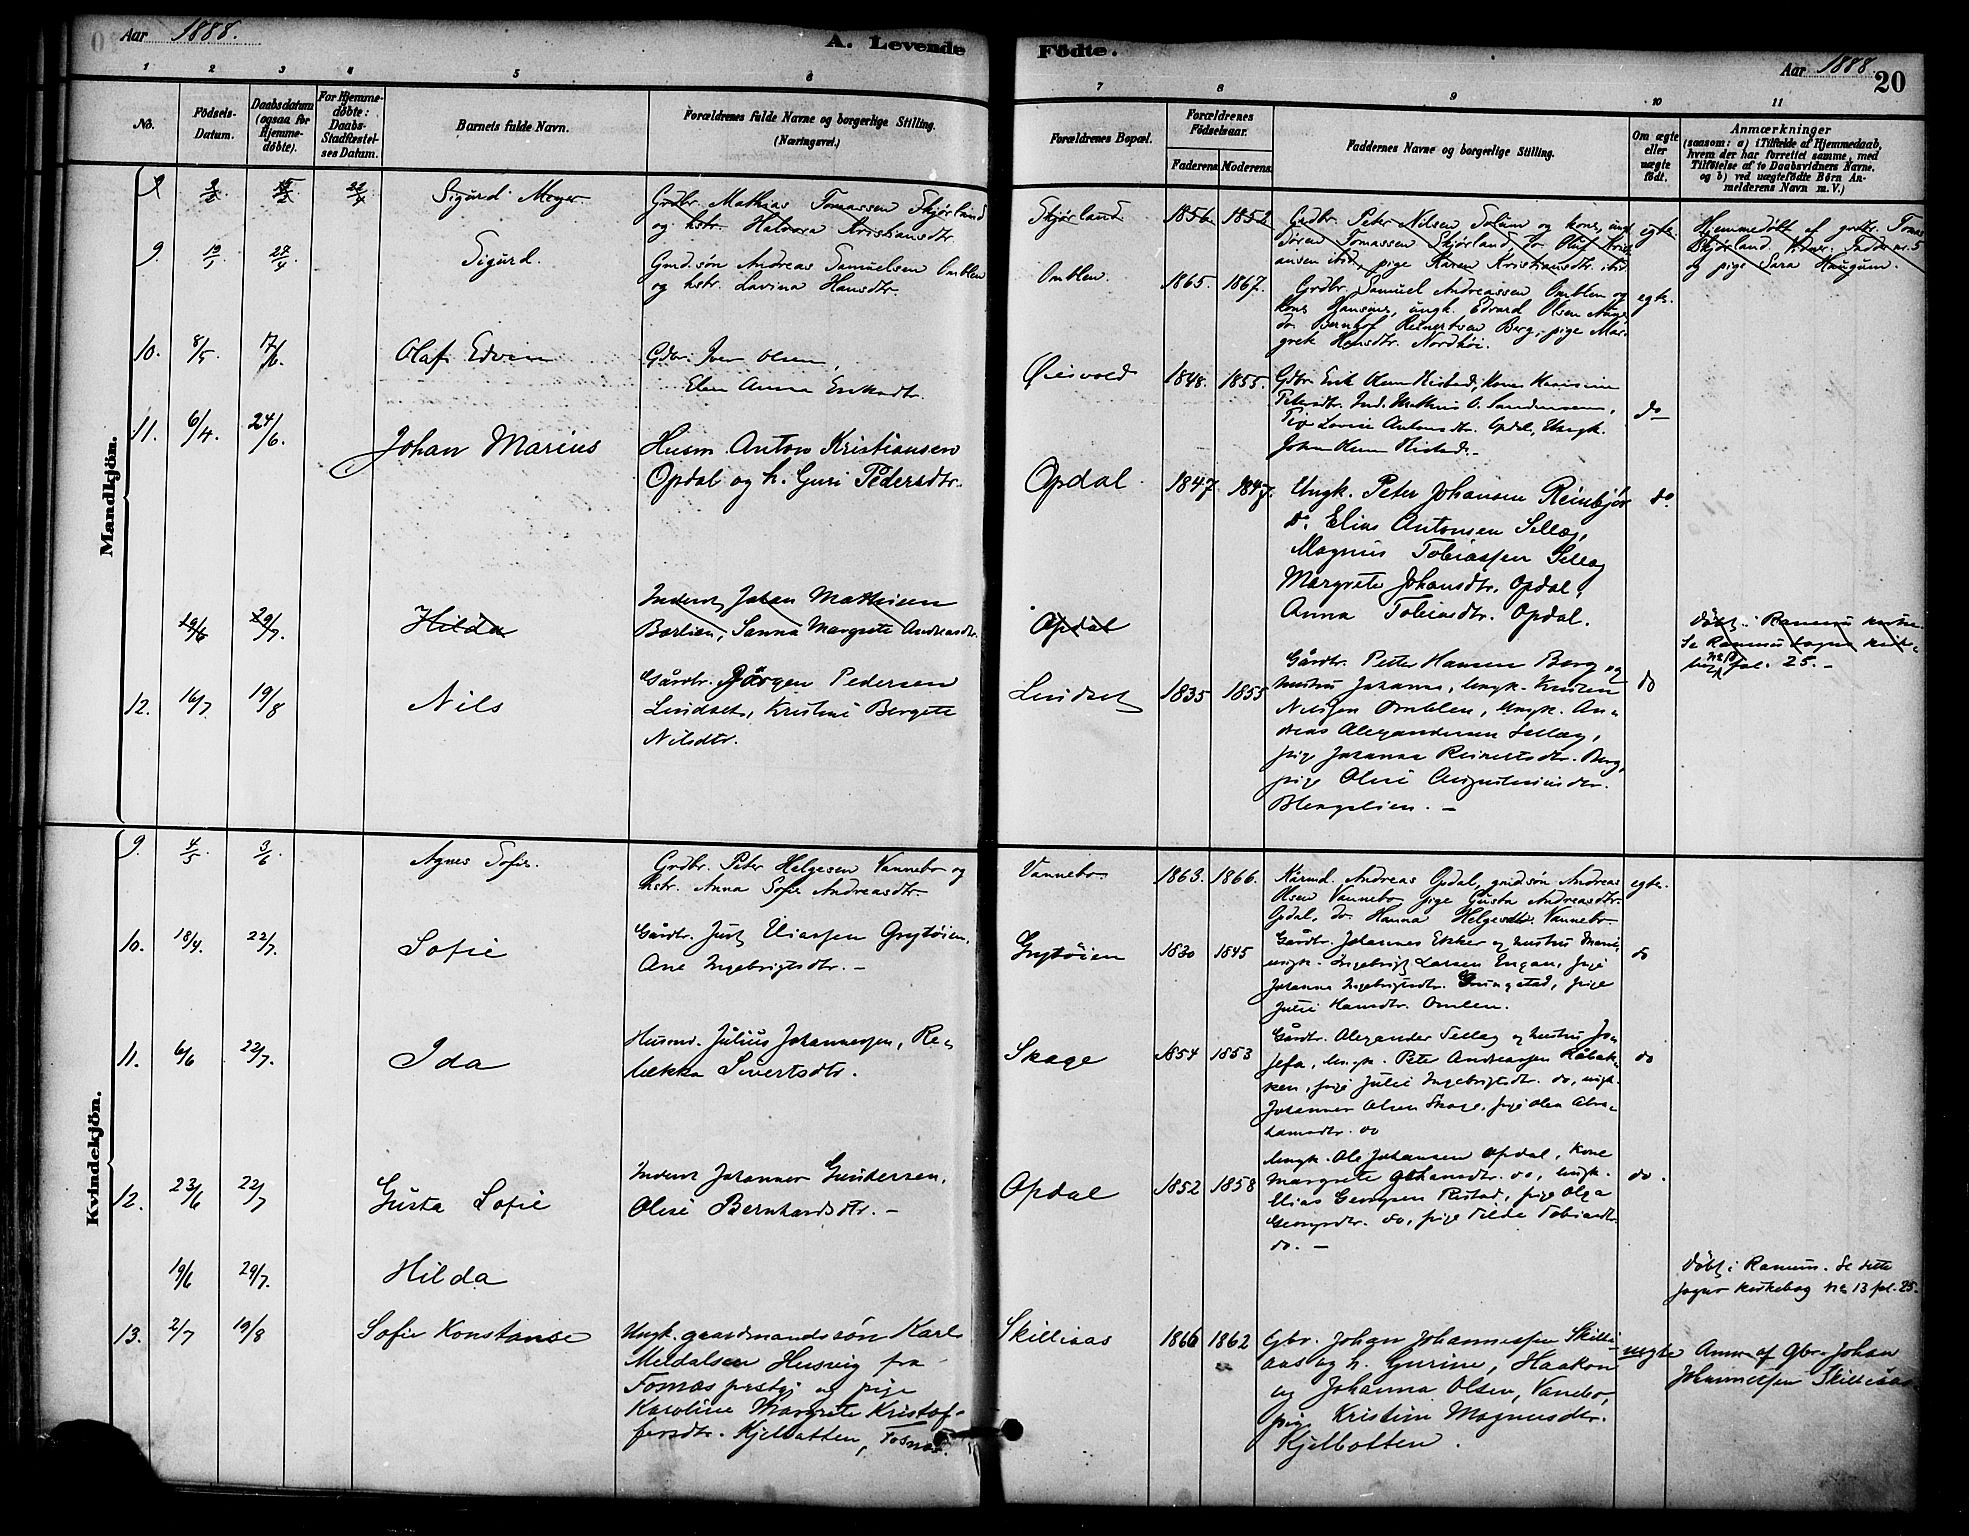 Aar 1888.
A. Levende
Födte.
Aar 1888.
20
1 2 3 4 5 6 7 8 9 10 11
No.
Födsels-
Datum.
Daabsdatum
(ogsaa for
Hjemme-
døbte).
For Hjemme-
døbte:
Daabs-
Stadfæstel-
ses Datum.
Barnets fulde Navn.
Forældrenes fulde Navne og borgerlige Stilling.
(Næringsvei.)
Forældrenes Bopæl.
Forældrenes
Födselsaar.
Faderens.
Moderens.
Faddernes Navne og borgerlige Stilling.
Om ægte
eller
uægte
født.
Anmærkninger
(saasom: a) i Tilfælde af Hjemmedaab,
hvem der har forrettet samme, med
Tilføielse af to Daabsvidners Navne.
og b) ved uægtefødte Börn An-
melderens Navn m. V.)
Mandkjön.
Sigurd Meyer
Grdbr. Mathias Tomassen Skjørland
og hstr. Halvora Kristiansdtr.
Skjørland
1856. 1852
Grdbr. Peter Nilsen Solum og kone, ungk.
Sören Tomassen Skjørland, do Oluf Kristi-
ansen ibid, pige Karen Kristiansdtr. ibid
egte.
Hjemmedøbt af grdbr. Tomas
Skjørland.
og pige Sara Haugum.
9
27/4
Sigurd.
Gmd.søn Andreas Samuelsen Omblen
og hstr. Lavina Hansdtr.
Omblen
1865. 1867.
Grdbr. Samuel Andreassen Omblen og
kone Hansine, ungk. Edvard Olsen
do Bernhof Reinertsen Berg, pige Mar-
grete Hansdtr. Nordhöi.
egte.
10. 8/5 17/6.
Olaf Edvin
Gdbr. Iver Olsen,
Elen Anna Eriksdtr.
Øiesvold
1848. 1855.
Gdbr. Erik Olsen Ristad, Kone
Petersdtr. Ind. Mathias O.
Pige Lovise Opdal, Ungk.
Johan Olsen Ristad.
do
11. 6/4. 24/6.
Johan Marius
Husm. Anton Kristiansen
Opdal og h. Guri Pedersdtr.
Opdal.
1847. 1847.
Ungk. Peter Johansen Reinbjør
do. Elias Antonsen Sellæg,
Magnus Tobiassen Sellæg
Margrete Johansdtr. Opdal,
Anna Tobiasdtr. Opdal.
do.
19/6 29/7.
Hilda
Inderst, Johan Mathisen
Barlien, Sanna Margrete Andreasdtr.
Opdal
Døbt i Ranems kirke.
Se Ranems sogns kirke-
fol. 25. -
12. 16/7 19/8
Nils
Gårdbr. Jörgen Pedersen
Lindset, Kristine Bergete
Nilsdtr.
Lindset
1835 1855
Gårdbr. Petter Hansen Berg og
hustru Johanna, Ungk. Kristen
Nilssen Omblen, Ungk. An-
dreas Alexandersen Sellæg,
pige Johanna Reinertsdtr. Berg,
pige Olise Augustinusdtr.
Blengslien. -
do
Kvindekjön.
9. 4/5. 3/6.
Agnes Sofie.
Grdbr. Peter Helgesen Vannebo og
hstr. Anna Sofie Andreasdtr
Vannebo
1863. 1866.
Kårmd. Andreas Opdal, gmdsön Andreas
Olsen Vannebo pige Gusta Andreasdtr.
Opdal, do. Hanna Helgesdtr. Vannebo.
egte.
10. 18/4. 22/7.
Sofie
Gårdbr. Just Eliassen Grytöien,
Ane Ingebrigtsdtr. -
Grytöien
1830 1845
Gårdbr. Johannes Ekker og hustru Marie,
ungk. Ingebrigt Larsen Engan, pige
Johanna Ingebrigtsdtr. Grungstad, pige
Julie Hansdtr. Omlen.
do
11. 6/6 22/7.
Ida
Husmd. Julius Johannessen, Re-
bekka Sivertsdtr.
Skage
1854 1853
Gårdbr. Alexander Sellæg og hustru Jo-
sefa, Ungk. Peter Andreassen Råbak-
ken, pige Julie Ingebrigtsdtr. do, ungk.
Johannes Olsen Skage, pige Olea Abra-
hamsdtr. do
do
12. 23/6 22/7
Gusta Sofie
Inderst Johannes Gundersen,
Olise Bernhardsdtr. -
Opdal
1852 1858
Ungk. Ole Johansen Opdal, Kone
Margrete Johansdtr. do, ungk.
Elias Georgsen Ristad, pige Olga
Georgsdtr. do, pige Tilde Tobiasdtr.
do. -
do.
19/6 29/7.
Hilda
Döbt i Ranem. Se dette
sogns kirkebog No 13 fol. 25.
13. 2/7 19/8
Sofie Konstanse
Ungk. gaardmandssön Karl
Meldalsen Husvig fra
Fosnæs prstgj og pige
Karoline Margrete Kristof-
fersdtr. Kjelbotten, Fosnæs.
Skilliaas
1866 1862
Gbr. Johan Johannessen Skilli-
aas og h. Gurine, Haakon
og Johanna Olsen, Vanebo,
pige Kristine Magnusdtr.
Kjelbotten.
uegte
Anm. af Gbr. Johan
Johannessen Skilliaas